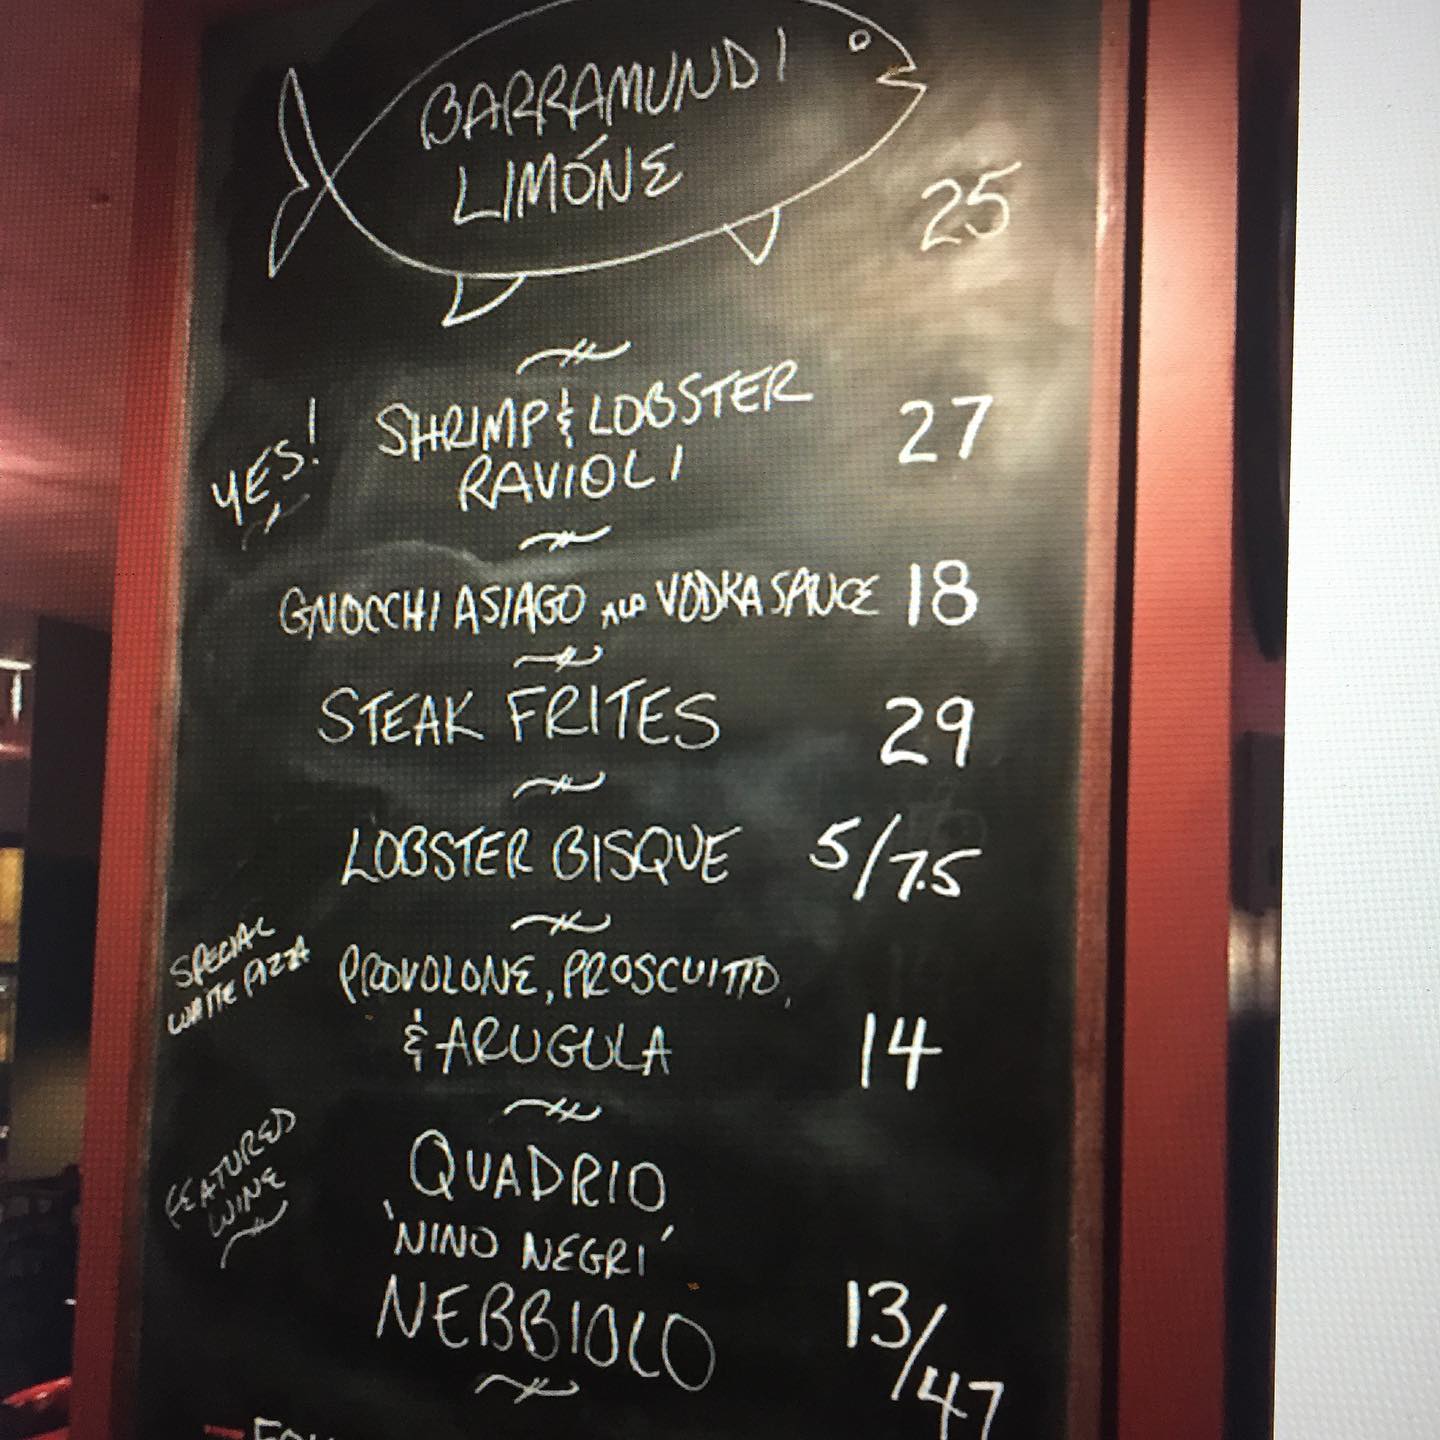 BARRAMUNDI
LIMÓNE
25
YES!
SHRIMP & LOBSTER
RAVIOLI
27
GNOCCHI ASIAGO ALA VODKA SAUCE 18
STEAK FRITES 29
LOBSTER BISQUE 5/7.5
SPECIAL
WHITE PIZZA
PROVOLONE, PROSCUITTO,
& ARUGULA 14
FEATURED
WINE
QUADRIO
'NINO NEGRI'
NEBBIOLO 13/47